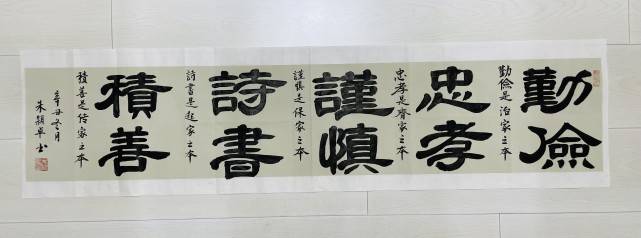 勤儉
勤儉是治家之本
忠孝
忠孝是齊家之本
謹慎
謹慎是保家之本
詩書
詩書是起家之本
積善
積善是傳家之本
辛丑冬月
朱
書